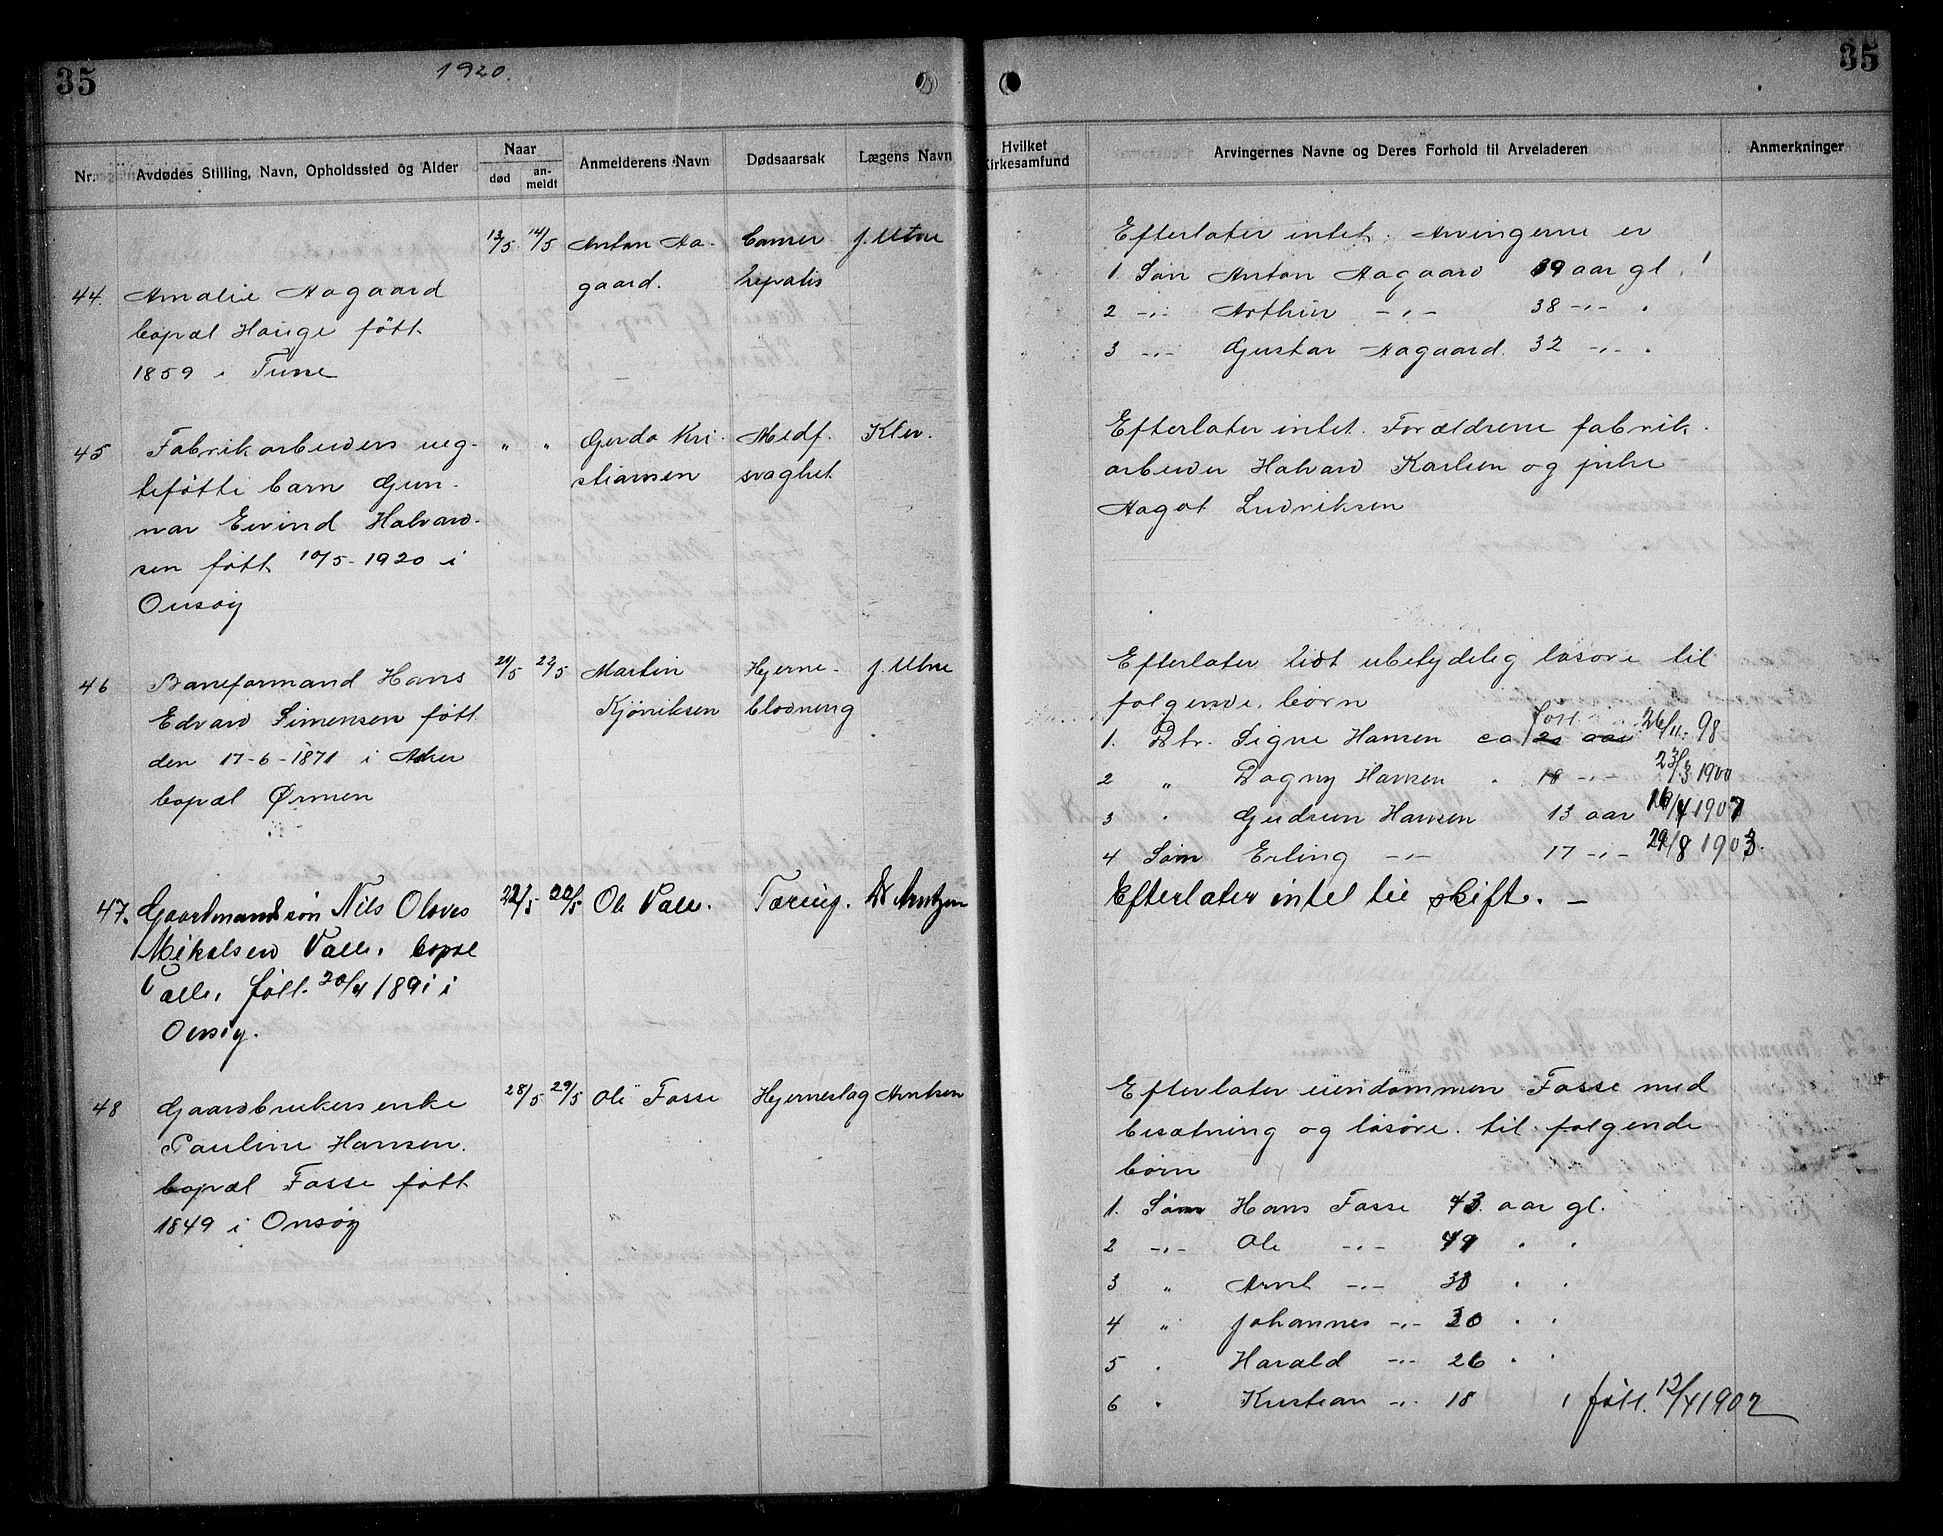 35
1920.
35
Nr.
Avdødes Stilling, Navn, Opholdssted og Alder
Naar
død
an-
meldt
Anmelderens Navn
Dødsaarsak
Lægens Navn
Hvilket
Kirkesamfund
Arvingernes Navne og Deres Forhold til Arveladeren
Anmerkninger
44.
Amalie Aagaard
bopæl Hauge født
1859 i Tune
13/5
14/5
Anton Aa-
gaard.
Canser
hepatis
J. Utne
Efterlater intet. Arvingerne er
1. Søn Anton Aagaard 39 aar gl.
2 -"- Arthur -"- 38 -"-
3 -"- Gustav Aagaard. 32 -"-
45
Fabrikarbeiders ueg-
teføtte barn Gun-
nar Eivind Halvard-
sen født 10/5-1920 i
Onsøy
" "
Gerda Kri-
stiansen
Medf.
svaghet
Klev.
Efterlater intet. Forældrene fabrik-
arbeider Halvard Karlsen og pike
Aagot Ludviksen
46
Baneformand Hans
Edvard Simensen født
den 17-6-1871 i Asker
bopæl Ørmen
22/5
Martin
Kjöniksen
Hjerne-
blødning
J. Utne
Efterlater lidt ubetydelig løsøre til
følgende børn
1. Dtr. Signe Hansen ca 21 aar født 26/11-98
2 " Dagny Hansen 18 -"- 23/3 1900
3 " Gudrun Hansen 13 aar 16/4 1907
4 Søn Erling -"- 17 -"- 29/8 1903.
47.
Gaardmandssøn Nils Olaves
Mikalsen Valle, bopæl
Valle, født 20/4 1891 i
Onsøy.
22/5
Ole Valle.
Tæring.
Dr Arntzen
Efterlater intet til skifte. —
48
Gaardbrukers enke
Pauline Hansen.
bopæl Fosse født
1849 i Onsøy
28/5
29/5
Ole Fosse
Hjerneslag
Arntsen
Efterlater eiendommen Fosse med
besætning og løsøre til følgende
børn
1. Søn Hans Fosse 43 aar gl.
2 -"- Ole -"- 41 " "
3 " Arnt -"- 38 " "
4 " Johannes -"- 30 " "
5 " Harald -"- 26 " "
6 " Kristian -"- 18 født 12/4 1902